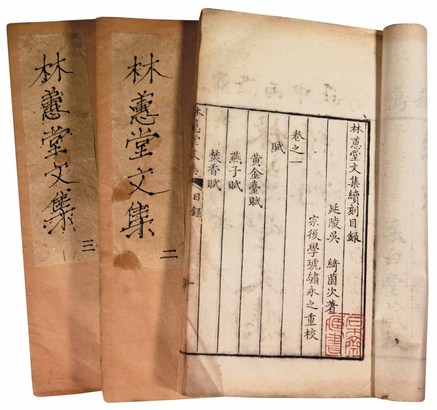 林蕙堂文集續刻目錄
延陵吳 綺薗次著
宗後學琥繡永之重校
卷之一
賦
黃金臺賦
燕子賦
焚香賦
目錄
林蕙堂文集
二
林蕙堂文集
三